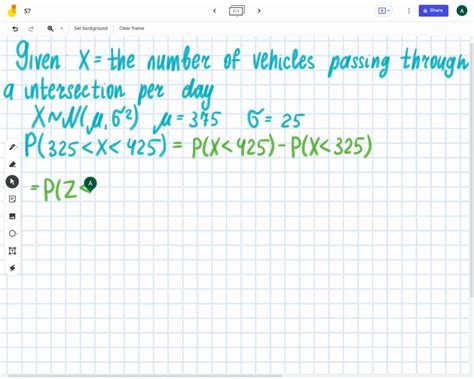 57
Share
A
Set background
Clear frame
Given X = the number of vehicles passing through
a intersection per day
X~N(μ, σ²) μ = 375 σ = 25
P(325 < X < 425) = P(X < 425) - P(X < 325)
= P(Z <
A